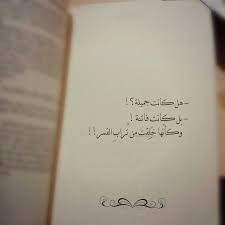 - هل كانت جميلة ؟ !
- بل كانت فاتنة !
وكأنها خُلِقت من تراب القمر ! !